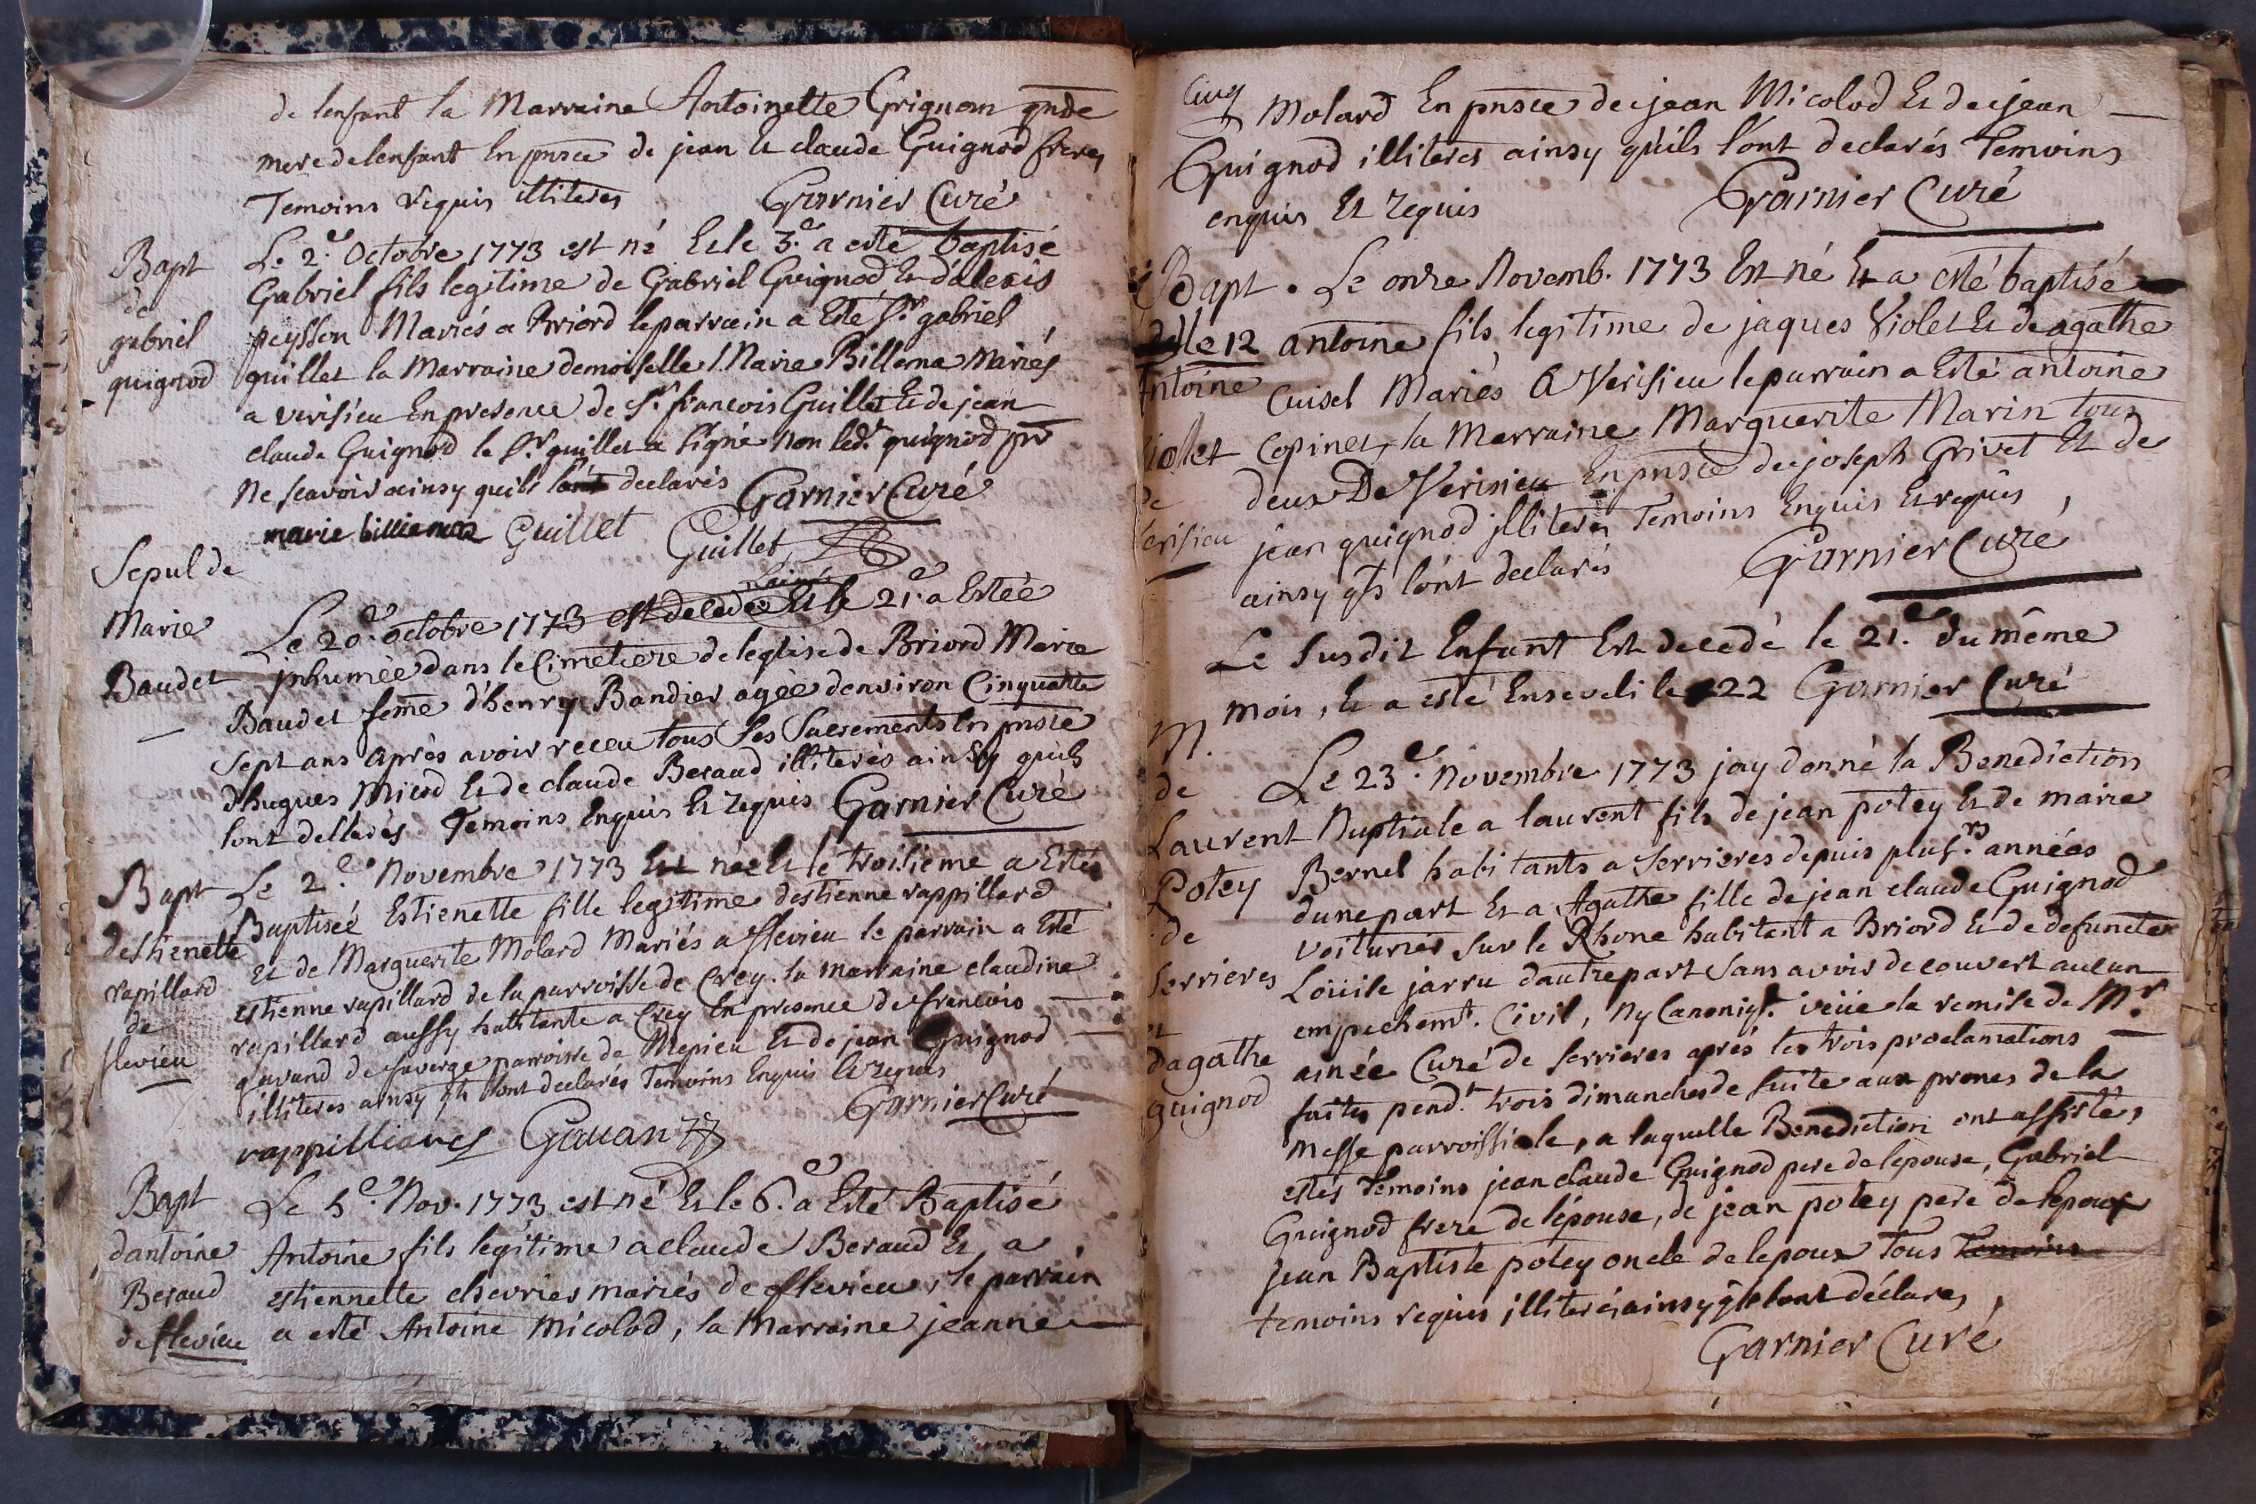 de lenfant la Marraine Antoinette Grignon gnde
mere de lenfant En pnsce de jean & claude Guignod freres
Temoins requis illiteres Garnier Curé
Bapt
de
gabriel
guignod
Le 2.e Octobre 1773 est né Et le 3.e a esté baptisé
Gabriel fils legitime de Gabriel Guignod Et d'alexis
peysson Mariés a Briord le parrain a Esté Sr. gabriel
guillet la Marraine demoiselle Marie Billema Mariés
a verisieu En presence de Sr. francois Guillet Et de jean
claude Guignod le Sr. guillet a signé non led.t guignod pr
Ne scavoir ainsy quils lont declarés Garnier Curé
marie billiemaz Guillet Guillet
Sepul de
Marie
Baudet
Le 20.e octobre 1773 est decedée Et le 21.e a Estée
jnhumée dans le Cimetiere de leglise de Briord Marie
Baudet feme d'henry Bandier agée denviron Cinquante
Sept ans Après avoir receu tous les Sacrements En pnsce
dhugues Micod Et de claude Beraud illiterés ainsy quils
lont dellarés Temoins Enquis Et requis Garnier Curé
Bapt
destienette
rapillard
de
flevieu
Le 2.e Novembre 1773 Est née Et le troisieme a Estée
Baptiseé Estienette fille legitime destienne rappillard
et de Marguerite Molard Mariés a flevieu le parrain a Eté
estienne rapillard de la parroisse de Crey. la marraine claudine
rapillard aussy habitante a Crey En presence de francois
gavand de faverge parroisse de Mepieu Et de jean Guignod
illiteres ainsy qls lont declarés Temoins Enquis Et requis
Garnier Curé
rappilliard Gauan
Bapt
dantoine
Beraud
de flevieu
Le 5.e Nov. 1773 est né Et le 6. a Esté Baptisé
Antoine fils legitime a claude Beraud Et a
estiennette chevries mariés de flevieu, le parrain
a esté Antoine Micolod, la Marraine jeanne
Cinq
Molard En pnsce de jean Micolod Et de jean
Guignod illiteres ainsy quils lont declarés Temoins
enquis Et requis Garnier Curé
Bapt
le 12
Antoine
Violet
de
Verisieu
Le onze Novemb. 1773 Est né Et a esté baptisé
antoine fils legitime de jaques Violet Et de agathe
Cuisel Mariés A Verisieu le parrain a Esté antoine
Copinet, la Marraine Marguerite Marin tous
deux De Verisieu En pnsce de joseph Grivet Et de
jean guignod jlliterés Temoins Enquis Et requis,
ainsy qls lont declarés Garnier Curé
Le Susdit Enfant Est decedé le 21.e du même
mois, Et a esté Enseveli le 22 Garnier Curé
M.
de
Laurent
Potey
de
Serrieres
et
dagathe
guignod
Le 23.e Novembre 1773 jay donné la Benediction
Nuptiale a laurent fils de jean potey Et de marie
Bernel habitants a Serrieres depuis plusrs. années
dune part Et a Agathe fille de jean claude Guignod
voiturier sur le Rhone habitant a Briord Et de defuncte
Loüise jarru dautre part sans avoir decouvert aucun
empechemt. Civil, Ny Canoniq. veüe la remise de Mr.
ainée Curé de Serrieres aprés les trois proclamations
faites pendt. trois dimanches de suite aux prones de la
Messe parroissiale, a laquelle Benediction ont assistés,
estés Temoins jean claude Guignod pere de lepouse, Gabriel
Guignod frere de lépouse, de jean potey pere de lepoux
jean Baptiste potey oncle de lepoux tous Temoins
temoins requis jlliterés ainsy qls lont déclarés,
Garnier Curé